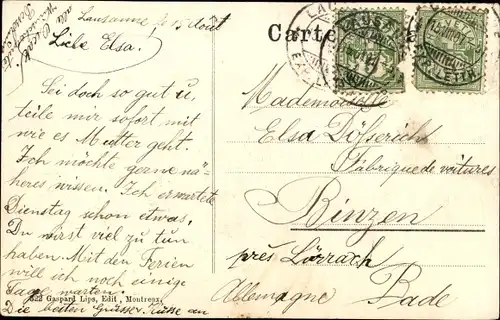 Lausanne le 15 Août
Liebe Elsa!
Sei doch so gut u.
teile mir sofort mit
wie es Mutter geht.
Ich möchte gerne nä-
heres wissen. Ich erwarte
Dienstag schon etwas.
Du wirst viel zu tun
haben. Mit den Ferien
will ich noch einige
Tage warten.
Die besten Grüsse & Küsse an
822 Gaspard Lips, Edit., Montreux.
Carte
Mademoiselle
Elsa
Fabrique de voitures
Binzen
près Lörrach
Allemagne Bade